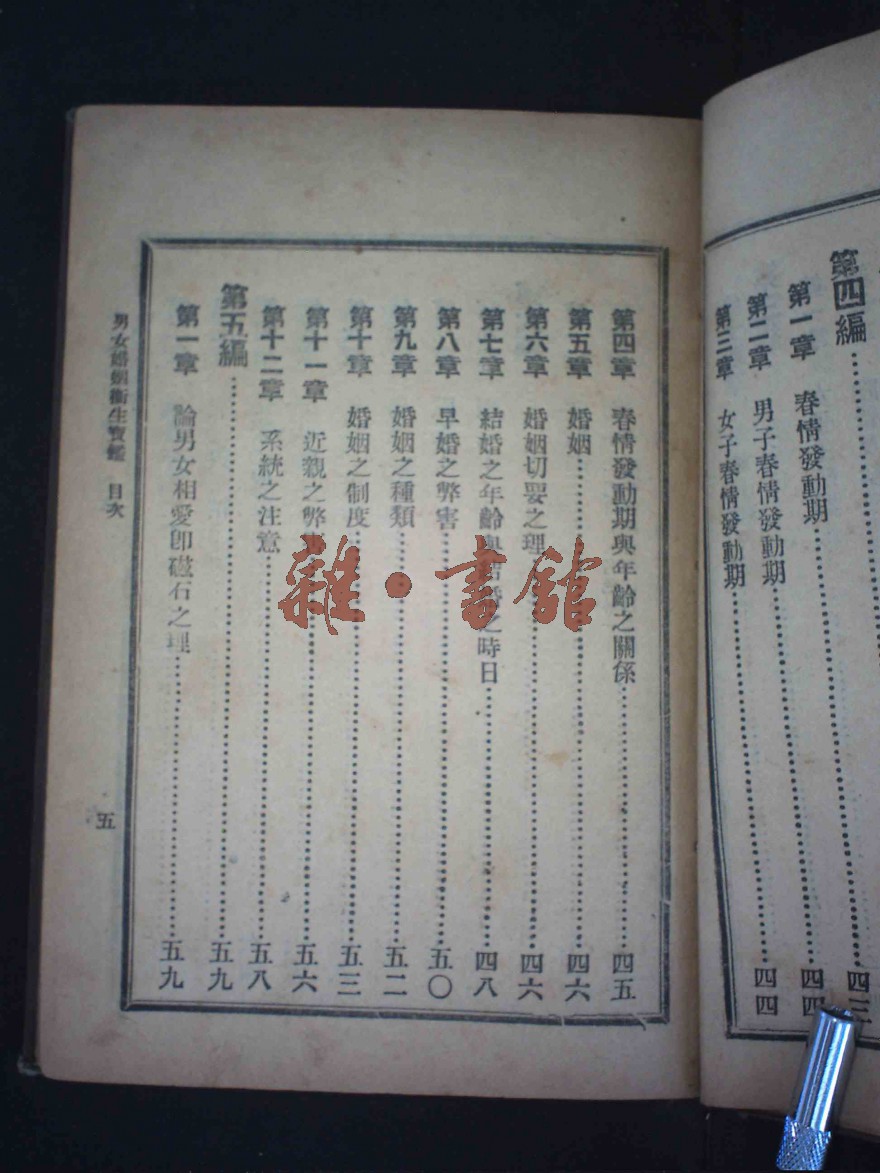 第四編……四三
第一章 春情發動期……四四
第二章 男子春情發動期……四四
第三章 女子春情發動期
第四章 春情發動期與年齡之關係……四五
第五章 婚姻……四六
第六章 婚姻切要之理……四六
第七章 結婚之年齡與結婚之時日……四八
第八章 早婚之弊害……五〇
第九章 婚姻之種類……五二
第十章 婚姻之制度……五三
第十一章 近親之弊……五六
第十二章 系統之注意……五八
第五編……五九
第一章 論男女相愛卽磁石之理……五九
男女婚姻衞生寶鑑 目次
五
雜·書館